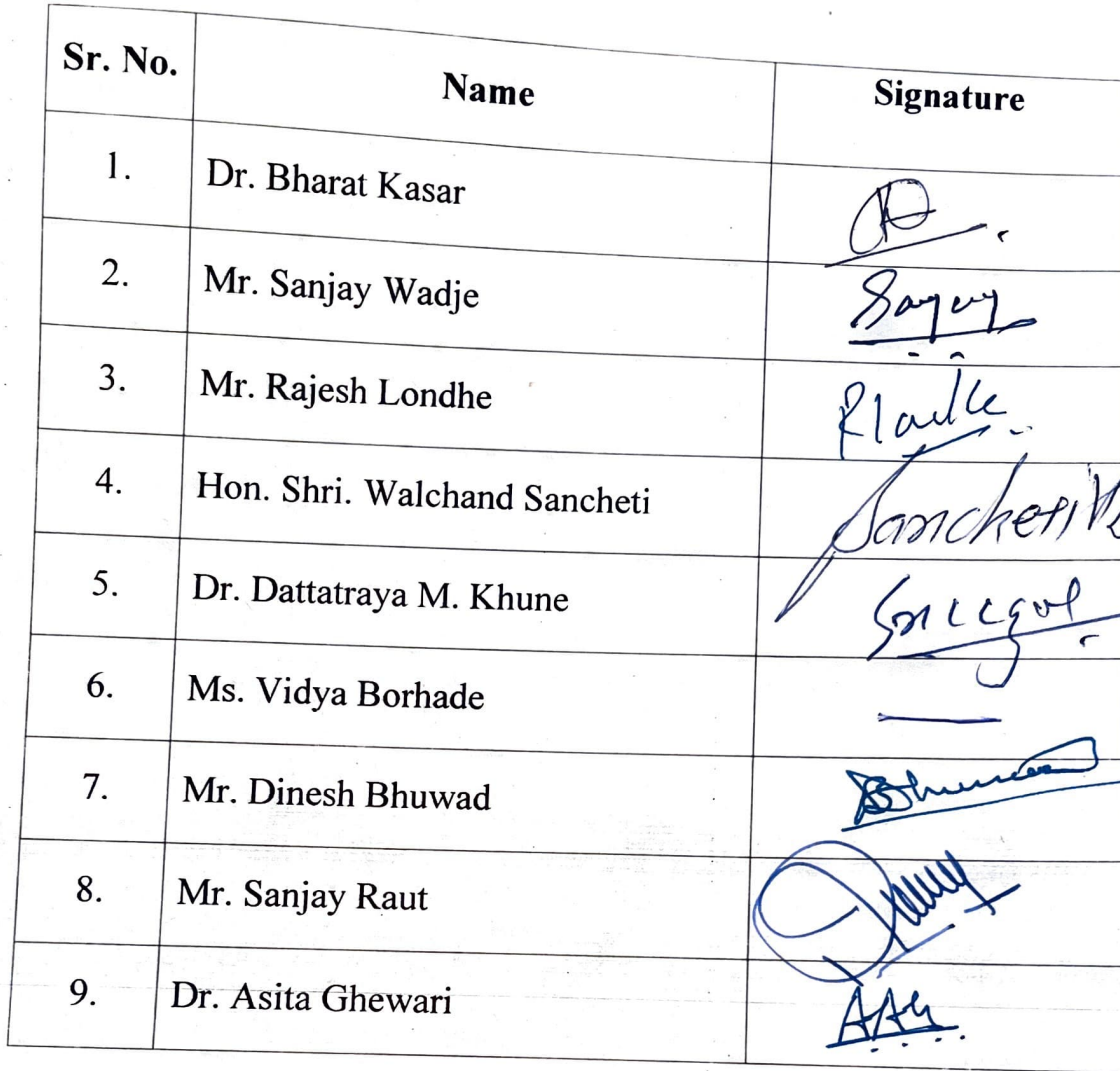 Sr. No. Name Signature
1. Dr. Bharat Kasar
2. Mr. Sanjay Wadje
3. Mr. Rajesh Londhe
4. Hon. Shri. Walchand Sancheti Sancheti
5. Dr. Dattatraya M. Khune
6. Ms. Vidya Borhade
7. Mr. Dinesh Bhuwad
8. Mr. Sanjay Raut
9. Dr. Asita Ghewari